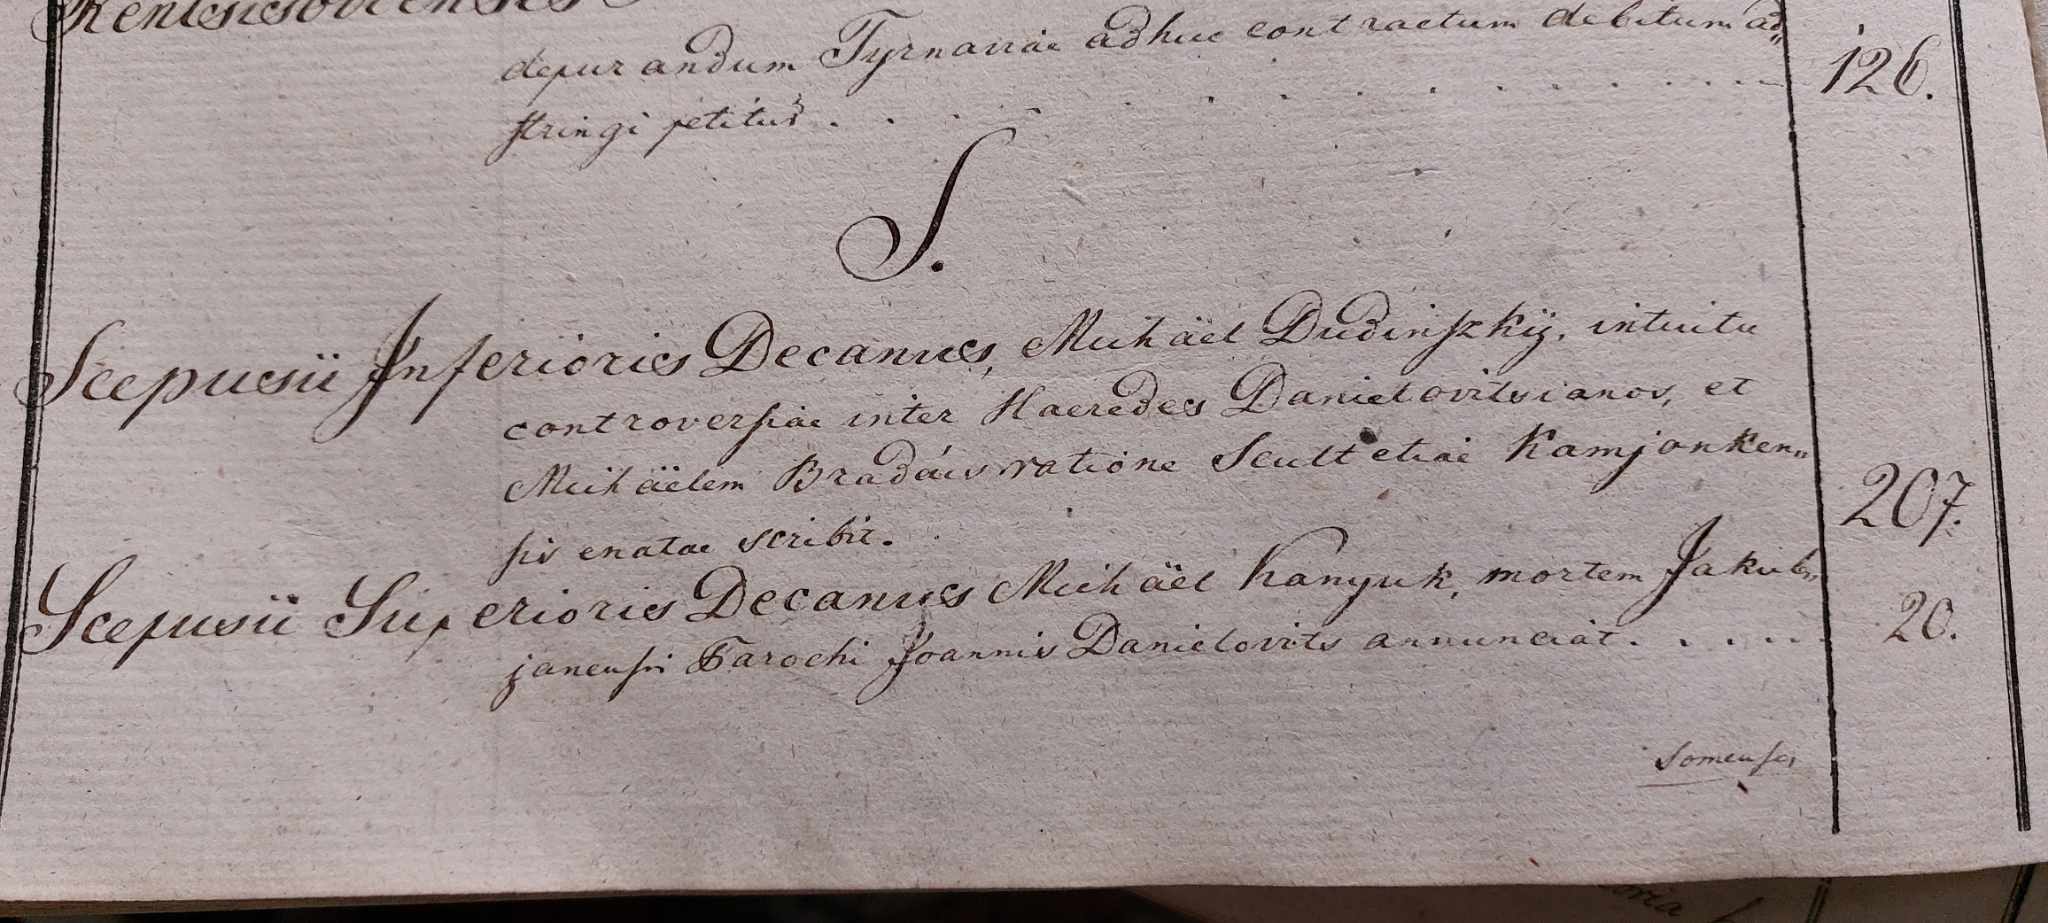 depurandum Tyrnaviae adhuc contractum debitum ad„
stringi petitur . . . . . . . . . . . . 126.
S.
Scepusii Inferioris Decanus, Michäel Dudinszkÿ, intuitu
controversiae inter Haeredes Danielovitsianos, et
Michäelem Bradács ratione Scultetiae Kamjonken„
sis enatae scribit. 207.
Scepusii Superioris Decanus Michäel Kanyuk, mortem Jakub„
janensis Parochi Joannis Danielovits annunciat. . . . . . 20.
Somensis